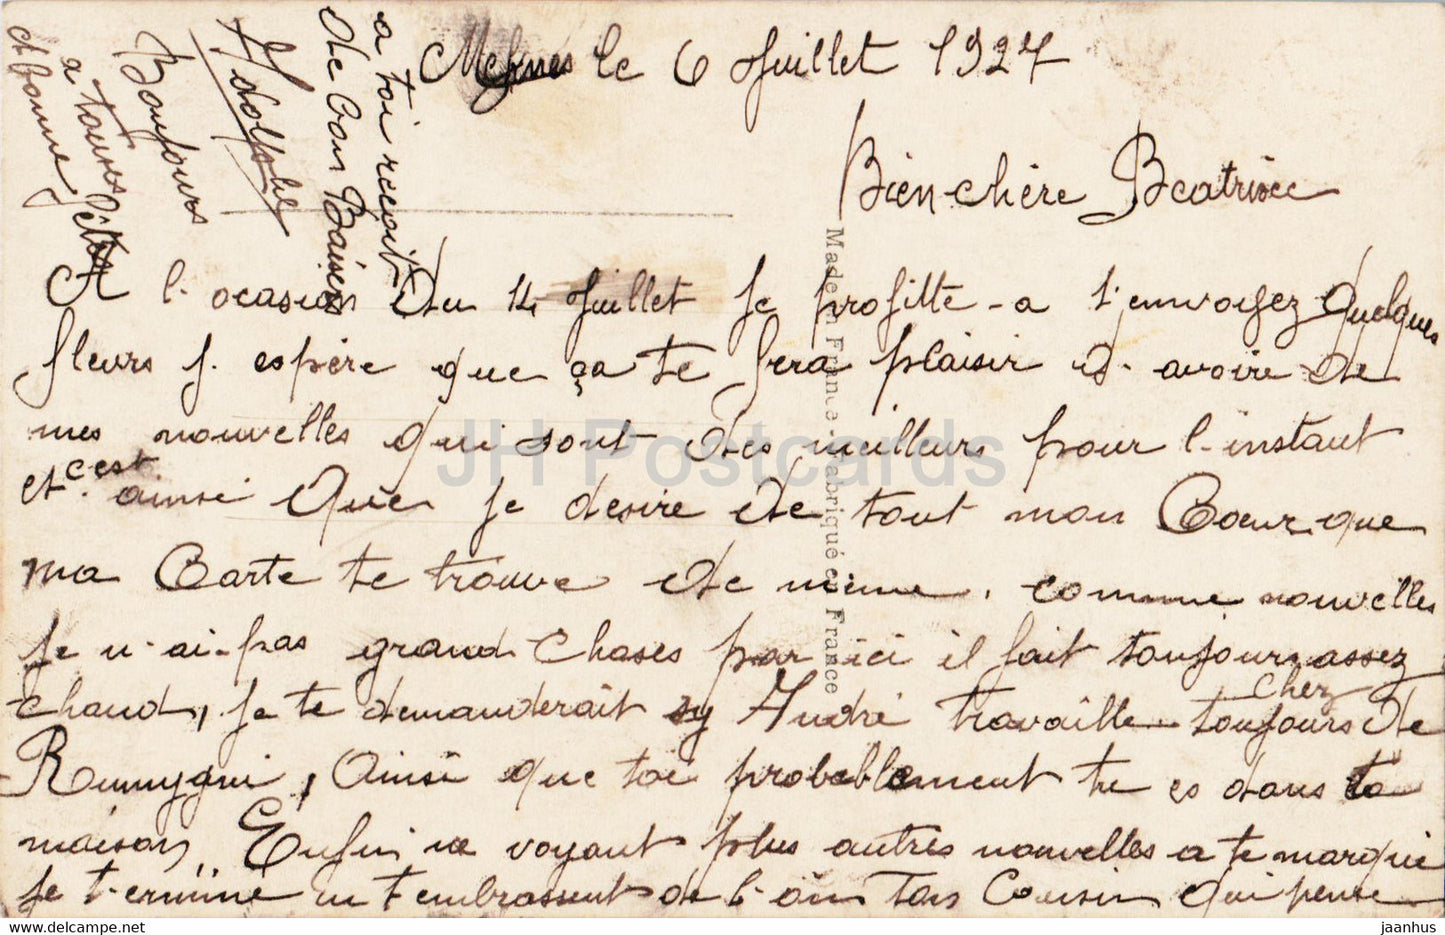 le 6 Juillet 1927
Bien chère Beatrisee
A l'ocasion du 14 Juillet Je profitte a t'envoyez quelques
fleurs j'espère que ça te fera plaisir d'avoire de
mes nouvelles qui sont des meilleurs pour l'instant
et c'est ainsi que je desire de tout mon Coeur que
ma Carte te trouve de même. comme nouvelles
je n'ai pas grand chases par ici il fait toujours assez
chaud, je te demanderait sy André travaille toujours chez de
, Ainsi que toi probablement tu es dans ta
maison. Enfin ne voyant plus autres nouvelles a te marqué
je termine en t'embrassent de loin ton Cousin qui pense
a toi reçoit
de bon Baisers
Adolphe
Bonjours
a toutes
et bonne fêtes
Made in France - Fabriqué en France
JH Postcards
www.delcampe.net
jaanhus